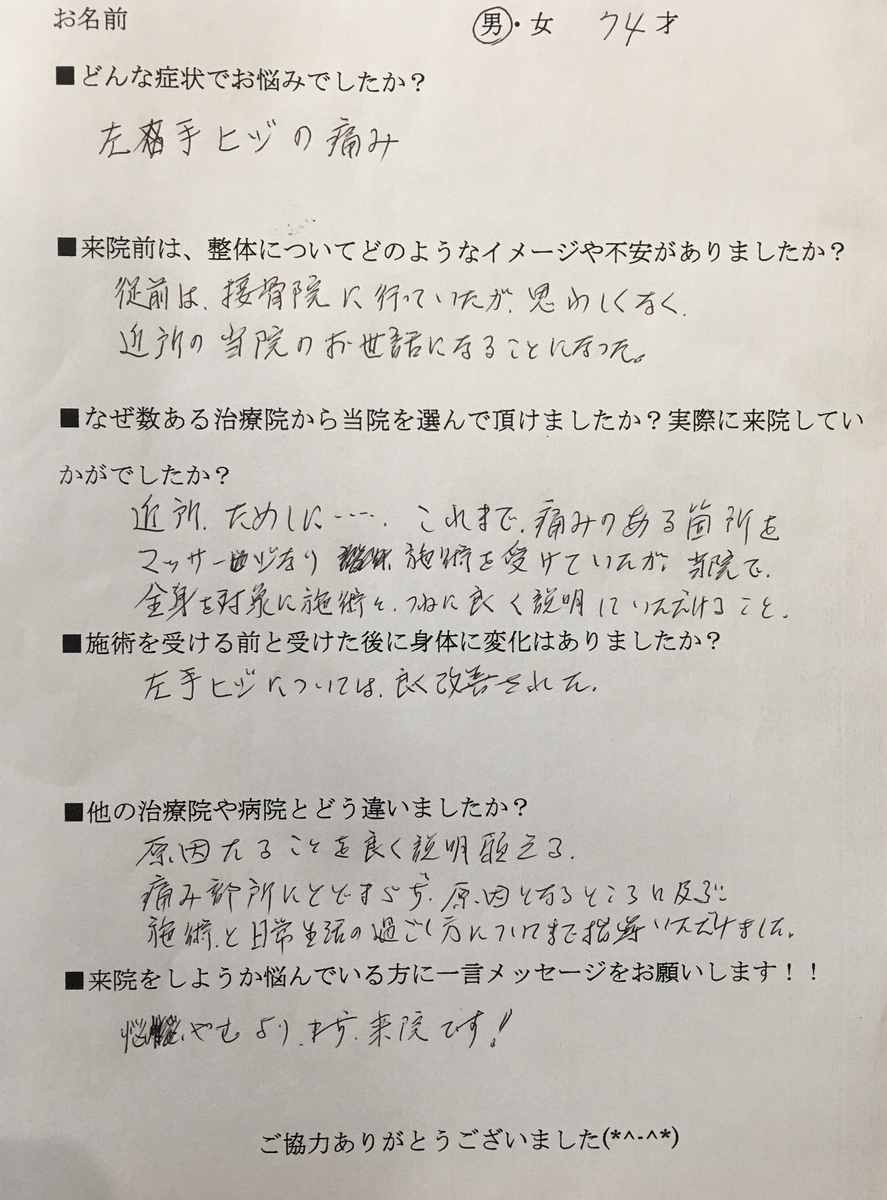 お名前 男・女 74才
■どんな症状でお悩みでしたか？
左手ヒジの痛み
■来院前は、整体についてどのようなイメージや不安がありましたか？
従前は、接骨院に行っていたが、思わしくなく、
近所の当院のお世話になることになった。
■なぜ数ある治療院から当院を選んで頂けましたか？実際に来院してい
かがでしたか？
近所、ためしに……、これまで、痛みのある箇所を
マッサージなり 施術を受けていたが、当院で、
全身を対象に施術を、つねに良く説明していただけること。
■施術を受ける前と受けた後に身体に変化はありましたか？
左手ヒジについては、良く改善された。
■他の治療院や病院とどう違いましたか？
原因たることを良く説明願える。
痛み診所にとどまらず、原因となるところに及ぶ
施術、と日常生活の過ごし方についてまで指導いただけました。
■来院をしようか悩んでいる方に一言メッセージをお願いします！！
悩やむより、まず、来院です！！
ご協力ありがとうございました(*^-^*)